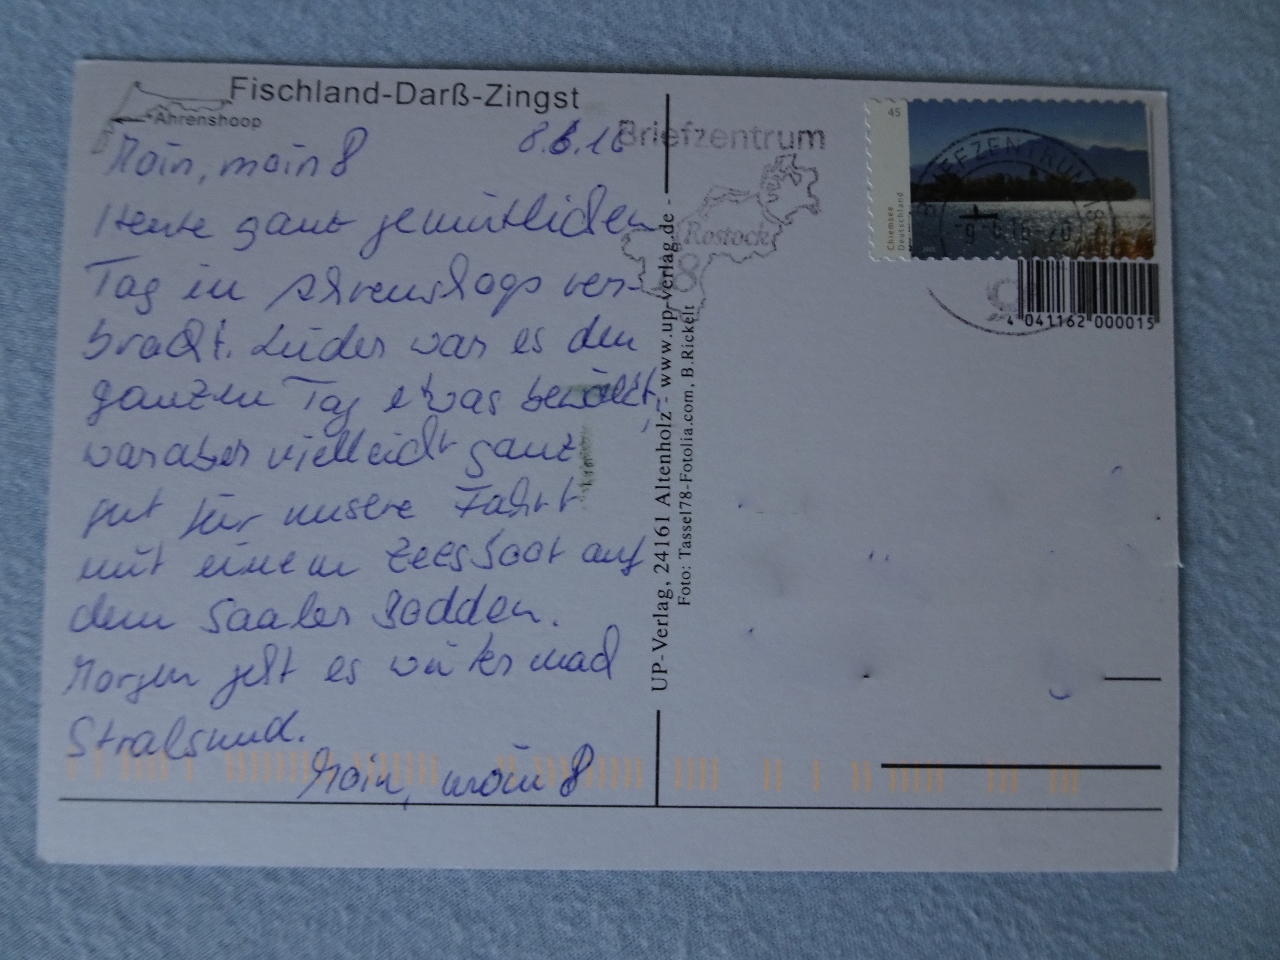 Fischland-Darß-Zingst
Ahrenshoop
8.6.16
Moin, moin!
Heute ganz gemütlichen
Tag in Ahrenshoop ver-
bracht. Leider war es den
ganzen Tag etwas bewölkt,
war aber vielleicht ganz
gut für unsere Fahrt
mit einem Zeesboot auf
dem Saaler Bodden.
Morgen geht es weiter nach
Stralsund.
Moin, moin!
UP-Verlag, 24161 Altenholz - www.up-verlag.de -
Foto: Tassel78-Fotolia.com, B.Rickelt
Briefzentrum
Rostock
18
45
Chiemsee
Deutschland
BRIEFZENTRUM
4 041162 000015